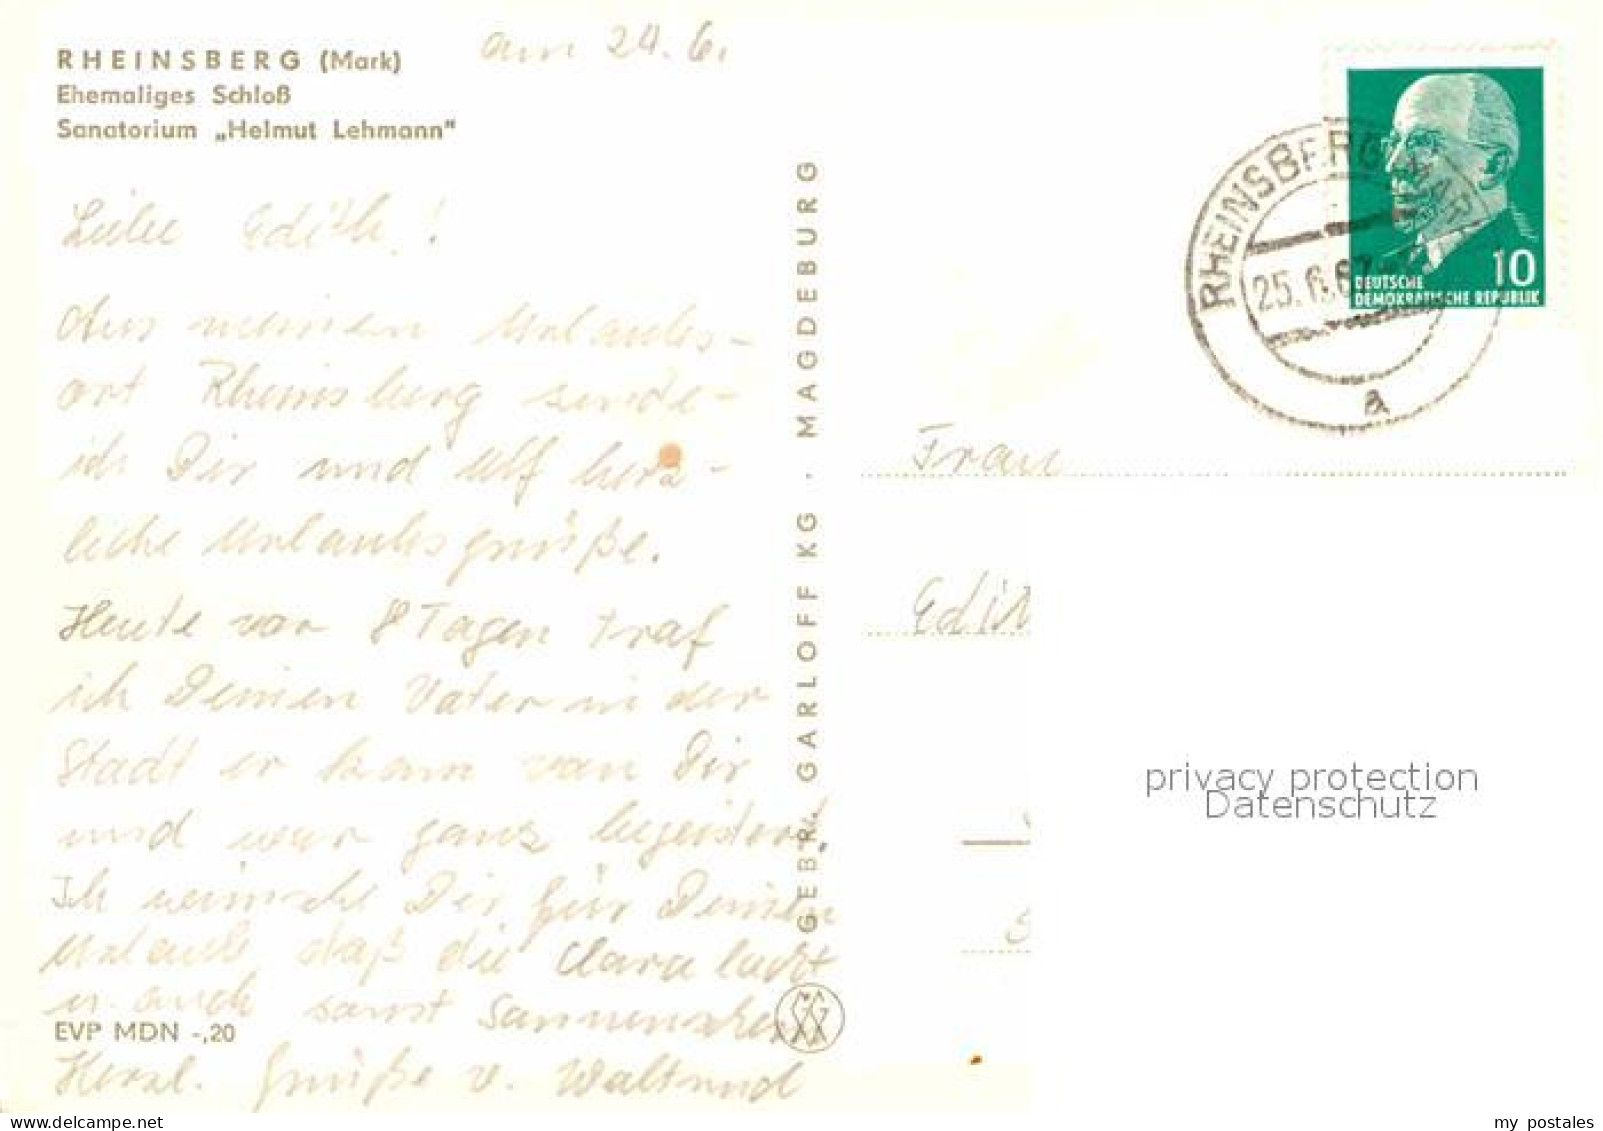 RHEINSBERG (Mark)
Ehemaliges Schloß
Sanatorium „Helmut Lehmann"
am 24. 6.
Liebe Edith!
Aus meinen Urlaubs-
ort Rheinsberg sende
ich Dir und Ulf herz-
liche Urlaubsgrüße.
Heute vor 8 Tagen traf
ich Deinen Vater in der
Stadt er kam von Dir
und war ganz begeistert.
Ich wünsche Dir für Deinen
Urlaub daß die Clara lacht
u. auch sonst Sonnenschein
Herzl. Grüße v. Waltraud
EVP MDN -,20
GEBR. GARLOFF KG · MAGDEBURG
RHEINSBERG (MARK)
25. 6. 67
a
10
DEUTSCHE
DEMOKRATISCHE REPUBLIK
Frau
Edith
privacy protection
Datenschutz
www.delcampe.net
my_postales